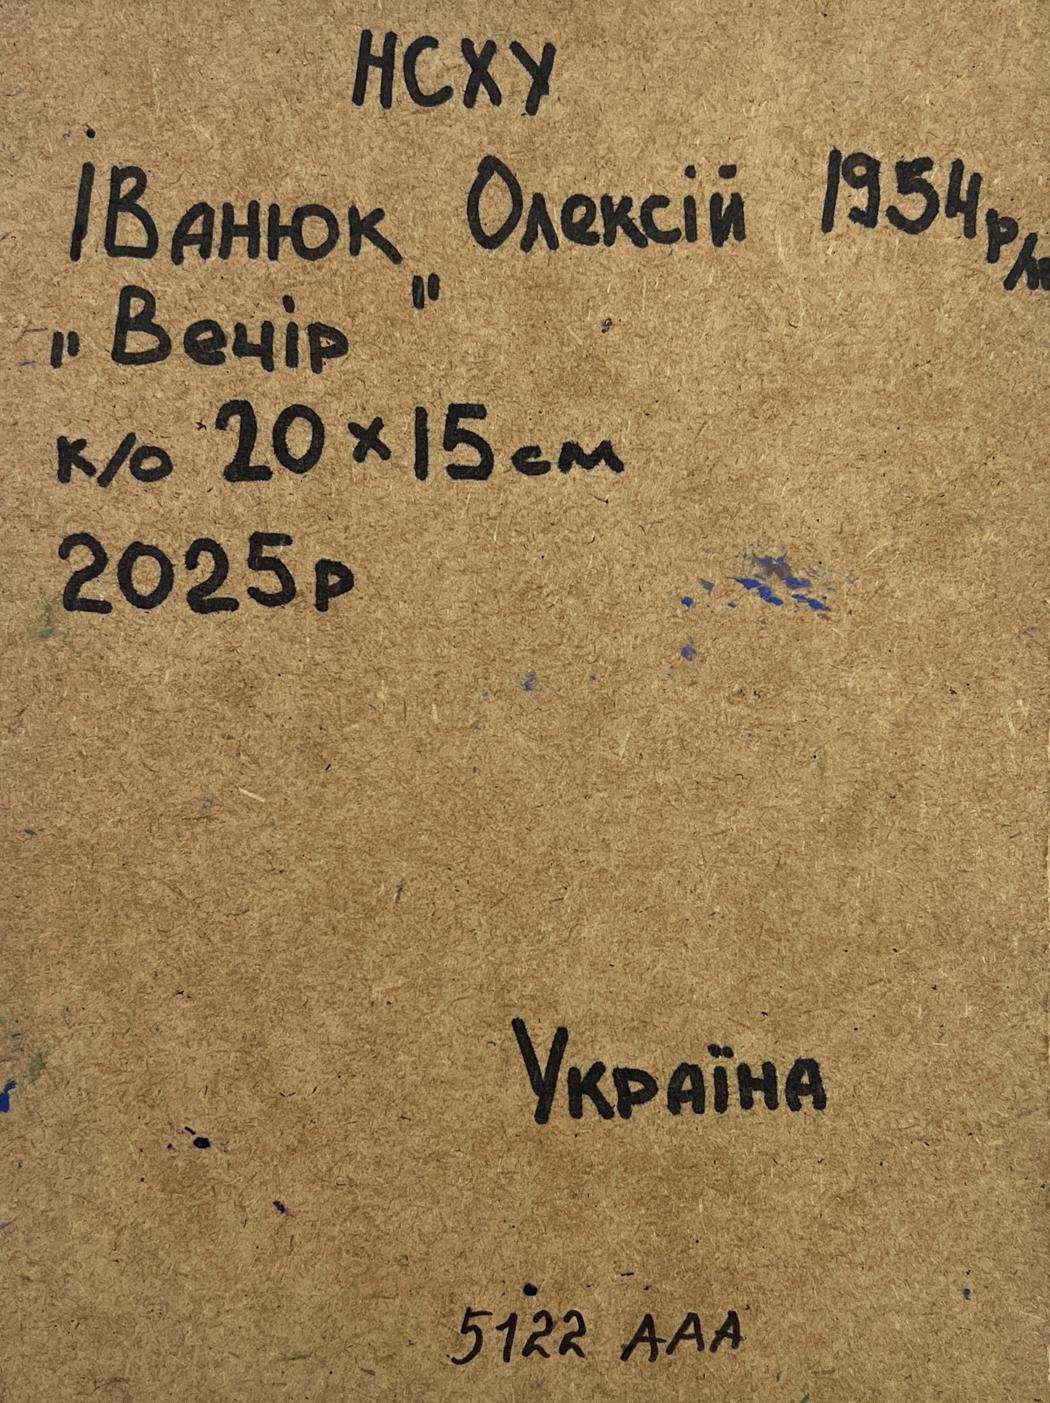 НСХУ
Іванюк Олексій 1954р/н
„Вечір"
к/о 20×15см
2025р
Україна
5122 ААА